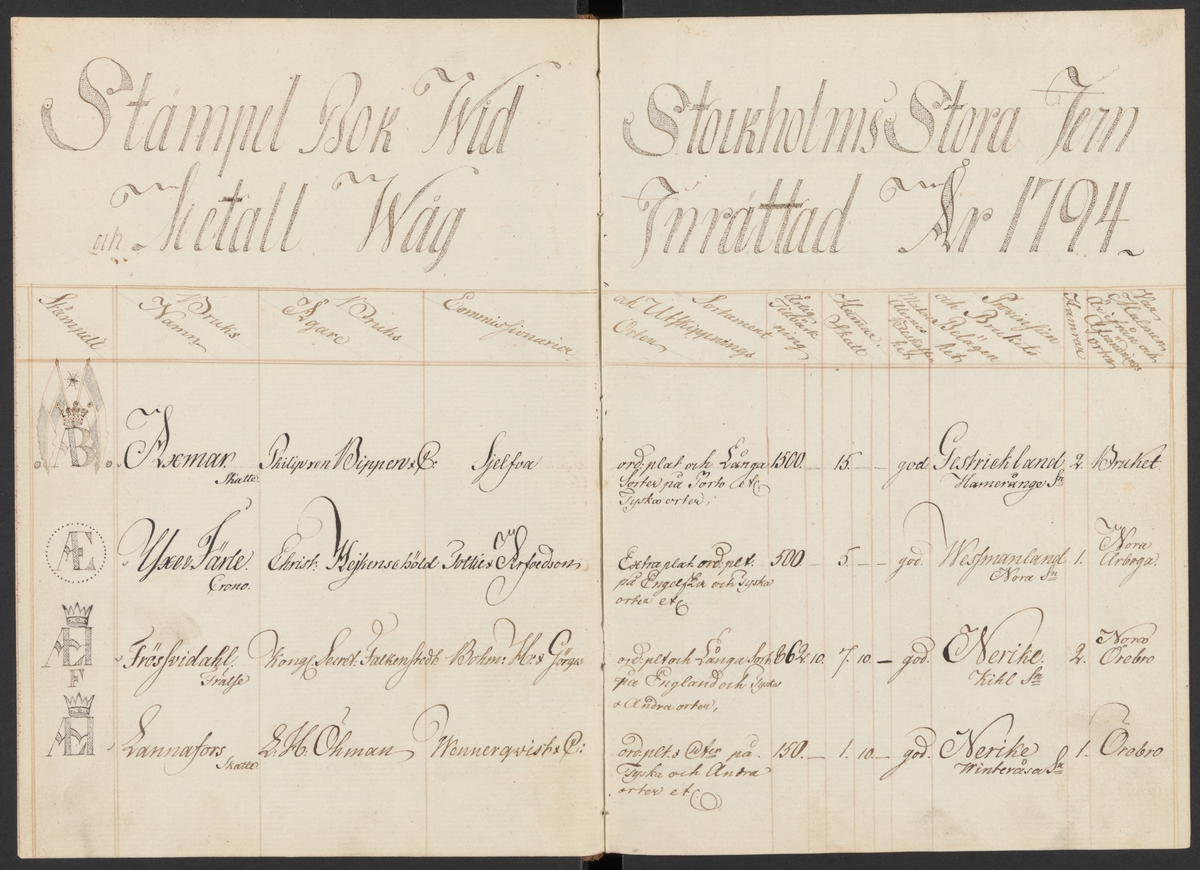 Stämpel Bok Wid Stockholms Stora Jern
och Metall Wåg Inrättad År 1794
Stämpell
Bruks Namn
Bruks Ägare
Commissionarier
Sortament och Utskippnings Orten
årlig Tillwärkning
Hamar Skatt
Provinsen och Brukets Belägenhet
Hamrar
AB Axmar Skatte Philip von Bippen & C: Sjelfva ord: plat och Långa Sorter på Porto etc Tyska orter; 1500 — 15. — — god Gestrickland Hamerånge Sn 2. Bruket
Æ Yxe Färle Crono. Christ: Heijkenschöld Tottie & Arfvedson Extra plat ord: plt: på Engelska och Tyska orter etc 500 — 5. — — god. Westmanland Nora Sn 1. Nora Arboga.
F Frösvidahl. Frälse Kongl Secret: Falkenstedt Bohm: H: & Görges ord: plt och Långa Sort: på England och Tyska & Andra orter, 662 10. 7. 10. — god. Nerike. Kihl Sn 2. Nora Örebro
Lannafors Skatte L. H. Öhman Wennerqwist & C: ord: plt: & på Tyska och Andra orter etc 150. — 1. 10. — god. Nerike Winteråsa Sn 1. Örebro